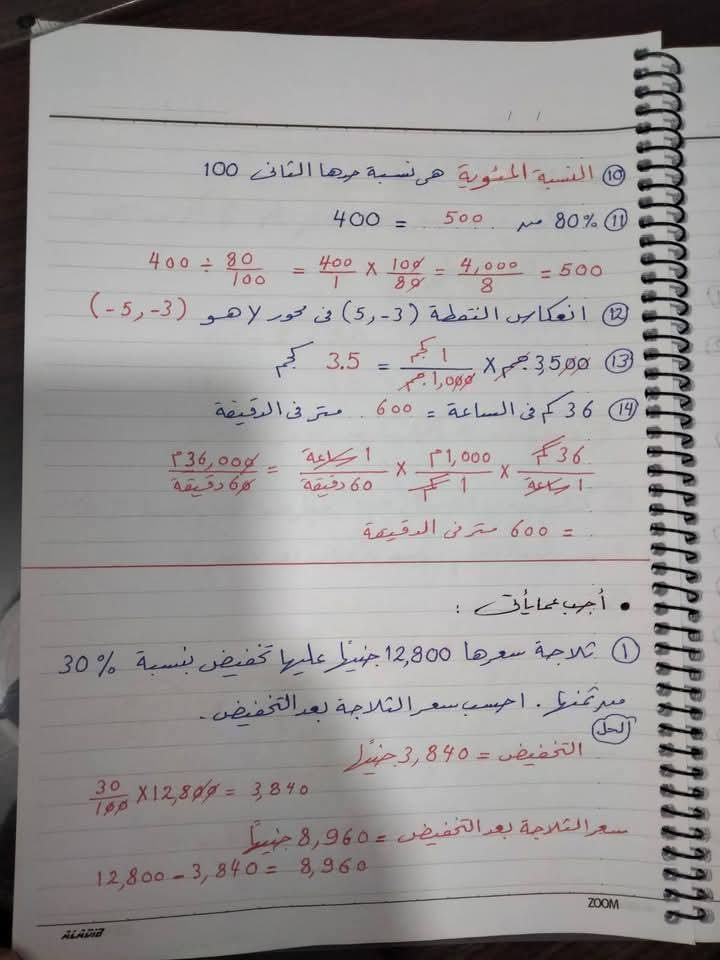 / /
⑩ النسبة المئوية هى نسبة حدها الثانى 100
⑪ 80% من 500 = 400
400 ÷ 80/100 = 400/1 × 100/80 = 4,000/8 = 500
⑫ انعكاس النقطة (5,-3) فى محور y هو (-5,-3)
⑬ 3,500 جم × 1 كجم/1,000 جم = 3.5 كجم
⑭ 36 كم فى الساعة = 600 متر فى الدقيقة
36 كم/1 ساعة × 1,000 م/1 كم × 1 ساعة/60 دقيقة = 36,000 م/60 دقيقة
= 600 متر فى الدقيقة
• أجب عما يأتى :
① ثلاجة سعرها 12,800 جنيهًا عليها تخفيض بنسبة 30%
من ثمنها . احسب سعر الثلاجة بعد التخفيض .
الحل
التخفيض = 3,840 جنيهًا
30/100 × 12,800 = 3,840
سعر الثلاجة بعد التخفيض = 8,960 جنيهًا
12,800 - 3,840 = 8,960
ZOOM
ALADIB